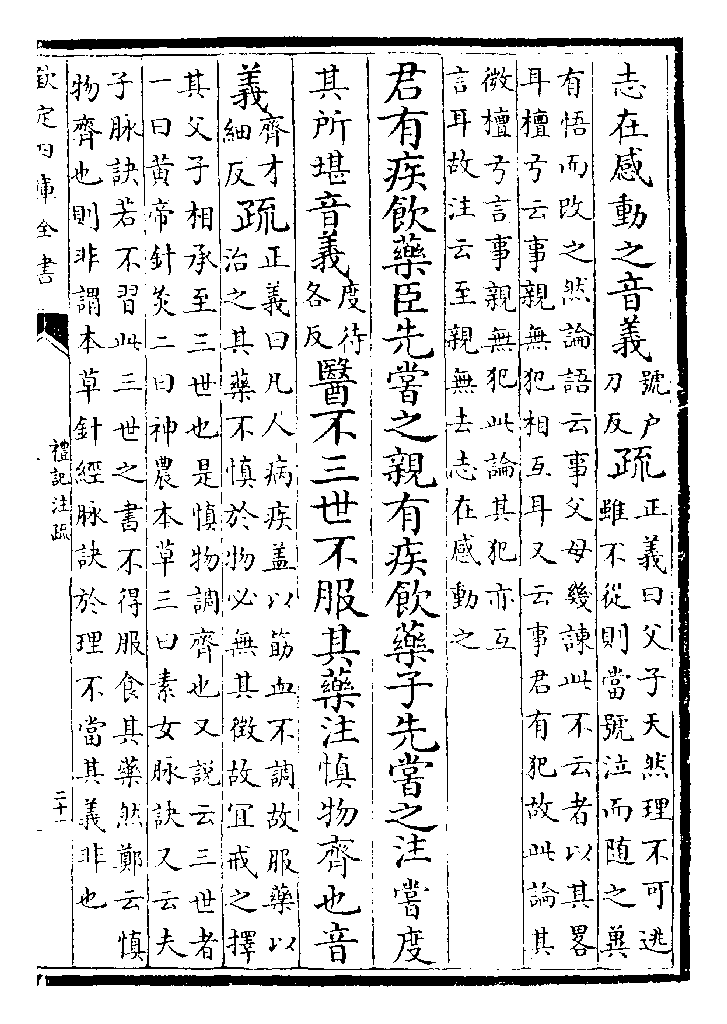 志在感動之音義號户刀反疏正義曰父子天然理不可逃
雖不從則當號泣而随之兾
有悟而改之然論語云事父母幾諫此不云者以其畧
耳檀弓云事親無犯相互耳又云事君有犯故此論其
微檀弓言事親無犯此論其犯亦互
言耳故注云至親無去志在感動之
君有疾飲藥臣先嘗之親有疾飲藥子先嘗之注嘗度
其所堪音義度待各反醫不三世不服其藥注慎物齊也音
義齊才細反疏正義曰凡人病疾盖以筋血不調故服藥以
治之其藥不慎於物必無其徴故宜戒之擇
其父子相承至三世也是慎物調齊也又説云三世者
一曰黄帝針灸二曰神農本草三曰素女脉訣又云夫
子脉訣若不習此三世之書不得服食其藥然鄭云慎
物齊也則非謂本草針經脉訣於理不當其義非也
欽定四庫全書
禮記注疏
二十一